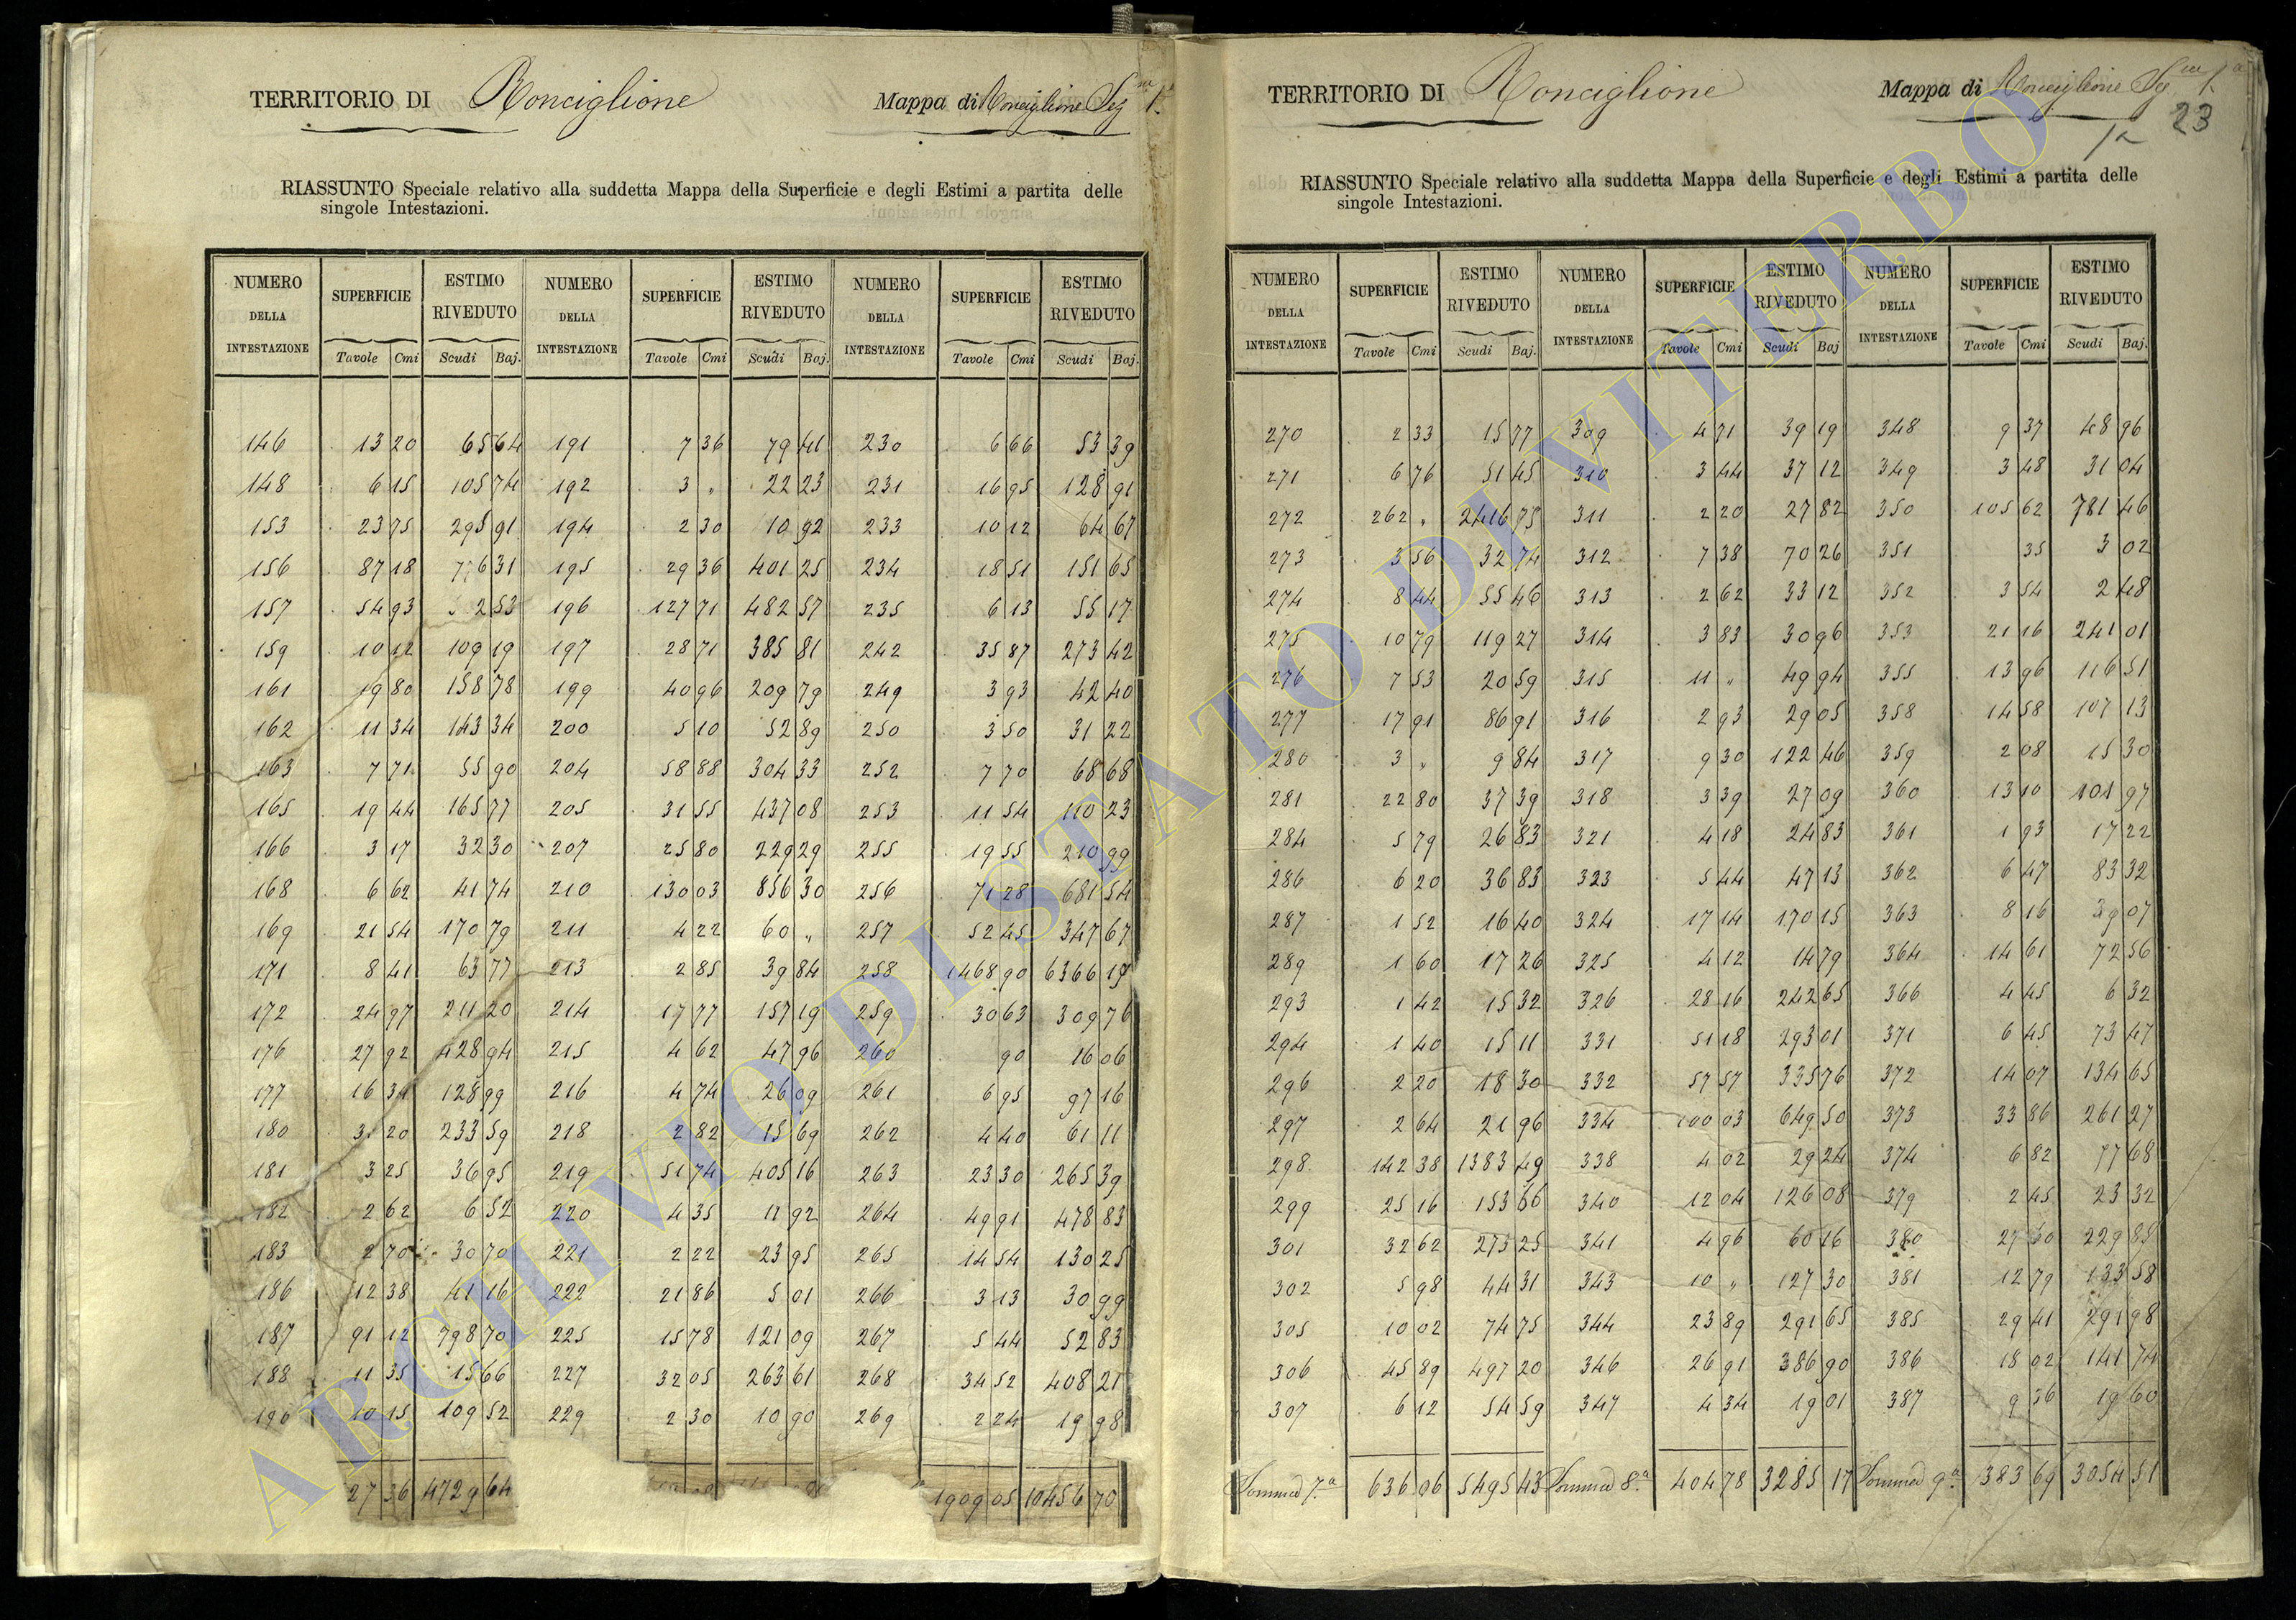 TERRITORIO DI Ronciglione Mappa di Ronciglione Sez.ne 1.a
RIASSUNTO Speciale relativo alla suddetta Mappa della Superficie e degli Estimi a partita delle
singole Intestazioni.
NUMERO DELLA INTESTAZIONE SUPERFICIE ESTIMO RIVEDUTO NUMERO DELLA INTESTAZIONE SUPERFICIE ESTIMO RIVEDUTO NUMERO DELLA INTESTAZIONE SUPERFICIE ESTIMO RIVEDUTO
Tavole Cmi Scudi Baj. Tavole Cmi Scudi Baj. Tavole Cmi Scudi Baj.
146 13 20 65 64 191 7 36 79 41 230 6 66 53 39
148 6 15 105 74 192 3 „ 22 23 231 16 95 128 91
153 23 75 295 91 194 2 30 10 92 233 10 12 64 67
156 87 18 776 31 195 29 36 401 25 234 18 51 151 65
157 54 93 2 53 196 127 71 482 57 235 6 13 55 17
159 10 12 109 19 197 28 71 385 81 242 35 87 273 42
161 19 80 158 78 199 40 96 209 79 249 3 93 42 40
162 11 34 143 34 200 5 10 52 89 250 3 50 31 22
163 7 71 55 90 204 58 88 304 33 252 7 70 68 68
165 19 44 165 77 205 31 55 437 08 253 11 54 110 23
166 3 17 32 30 207 25 80 229 29 255 19 55 210 99
168 6 62 41 74 210 130 03 856 30 256 71 28 681 54
169 21 54 170 79 211 4 22 60 „ 257 52 45 347 67
171 8 41 63 77 213 2 85 39 84 258 1468 90 6366 19
172 24 97 211 20 214 17 77 157 19 259 30 63 309 76
176 27 92 428 94 215 4 62 47 96 260 90 16 06
177 16 34 128 99 216 4 74 26 09 261 6 95 97 16
180 31 20 233 59 218 2 82 15 69 262 4 40 61 11
181 3 25 36 95 219 51 74 405 16 263 23 30 265 39
182 2 62 6 52 220 4 35 11 92 264 49 91 478 83
183 2 70 30 70 221 2 22 23 95 265 14 54 130 25
186 12 38 41 16 222 21 86 5 01 266 3 13 30 99
187 91 12 798 70 225 15 78 121 09 267 5 44 52 83
188 11 35 15 66 227 32 05 263 61 268 34 52 408 21
190 10 15 109 52 229 2 30 10 90 269 2 24 19 98
27 36 4729 64 1909 05 10456 70
TERRITORIO DI Ronciglione Mappa di Ronciglione Sez.ne 1.a
23
RIASSUNTO Speciale relativo alla suddetta Mappa della Superficie e degli Estimi a partita delle
singole Intestazioni.
NUMERO DELLA INTESTAZIONE SUPERFICIE ESTIMO RIVEDUTO NUMERO DELLA INTESTAZIONE SUPERFICIE ESTIMO RIVEDUTO NUMERO DELLA INTESTAZIONE SUPERFICIE ESTIMO RIVEDUTO
Tavole Cmi Scudi Baj. Tavole Cmi Scudi Baj Tavole Cmi Scudi Baj.
270 2 33 15 77 309 4 71 39 19 348 9 37 48 96
271 6 76 51 45 310 3 44 37 12 349 3 48 31 04
272 262 „ 2416 75 311 2 20 27 82 350 105 62 781 46
273 3 56 32 74 312 7 38 70 26 351 35 3 02
274 8 44 55 46 313 2 62 33 12 352 3 54 2 48
275 10 79 119 27 314 3 83 30 96 353 21 16 241 01
276 7 53 20 59 315 11 „ 49 94 355 13 96 116 51
277 17 91 86 91 316 2 93 29 05 358 14 58 107 13
280 3 „ 9 84 317 9 30 122 46 359 2 08 15 30
281 22 80 37 39 318 3 39 27 09 360 13 10 101 97
284 5 79 26 83 321 4 18 24 83 361 1 93 17 22
286 6 20 36 83 323 5 44 47 13 362 6 47 83 32
287 1 52 16 40 324 17 14 170 15 363 8 16 39 07
289 1 60 17 26 325 4 12 14 79 364 14 61 72 56
293 1 42 15 32 326 28 16 242 65 366 4 45 6 32
294 1 40 15 11 331 51 18 293 01 371 6 45 73 47
296 2 20 18 30 332 57 57 335 76 372 14 07 134 65
297 2 64 21 96 334 100 03 649 50 373 33 86 261 27
298 142 38 1383 49 338 4 02 29 24 374 6 82 77 68
299 25 16 153 66 340 12 04 126 08 379 2 45 23 32
301 32 62 273 25 341 4 96 60 16 380 27 60 229 85
302 5 98 44 31 343 10 „ 127 30 381 12 79 133 58
305 10 02 74 75 344 23 89 291 65 385 29 41 291 98
306 45 89 497 20 346 26 91 386 90 386 18 02 141 74
307 6 12 54 59 347 4 34 19 01 387 9 36 19 60
Somma 7.a 636 06 5495 43 Somma 8.a 404 78 3285 17 Somma 9.a 383 69 3054 51
ARCHIVIO DI STATO DI VITERBO